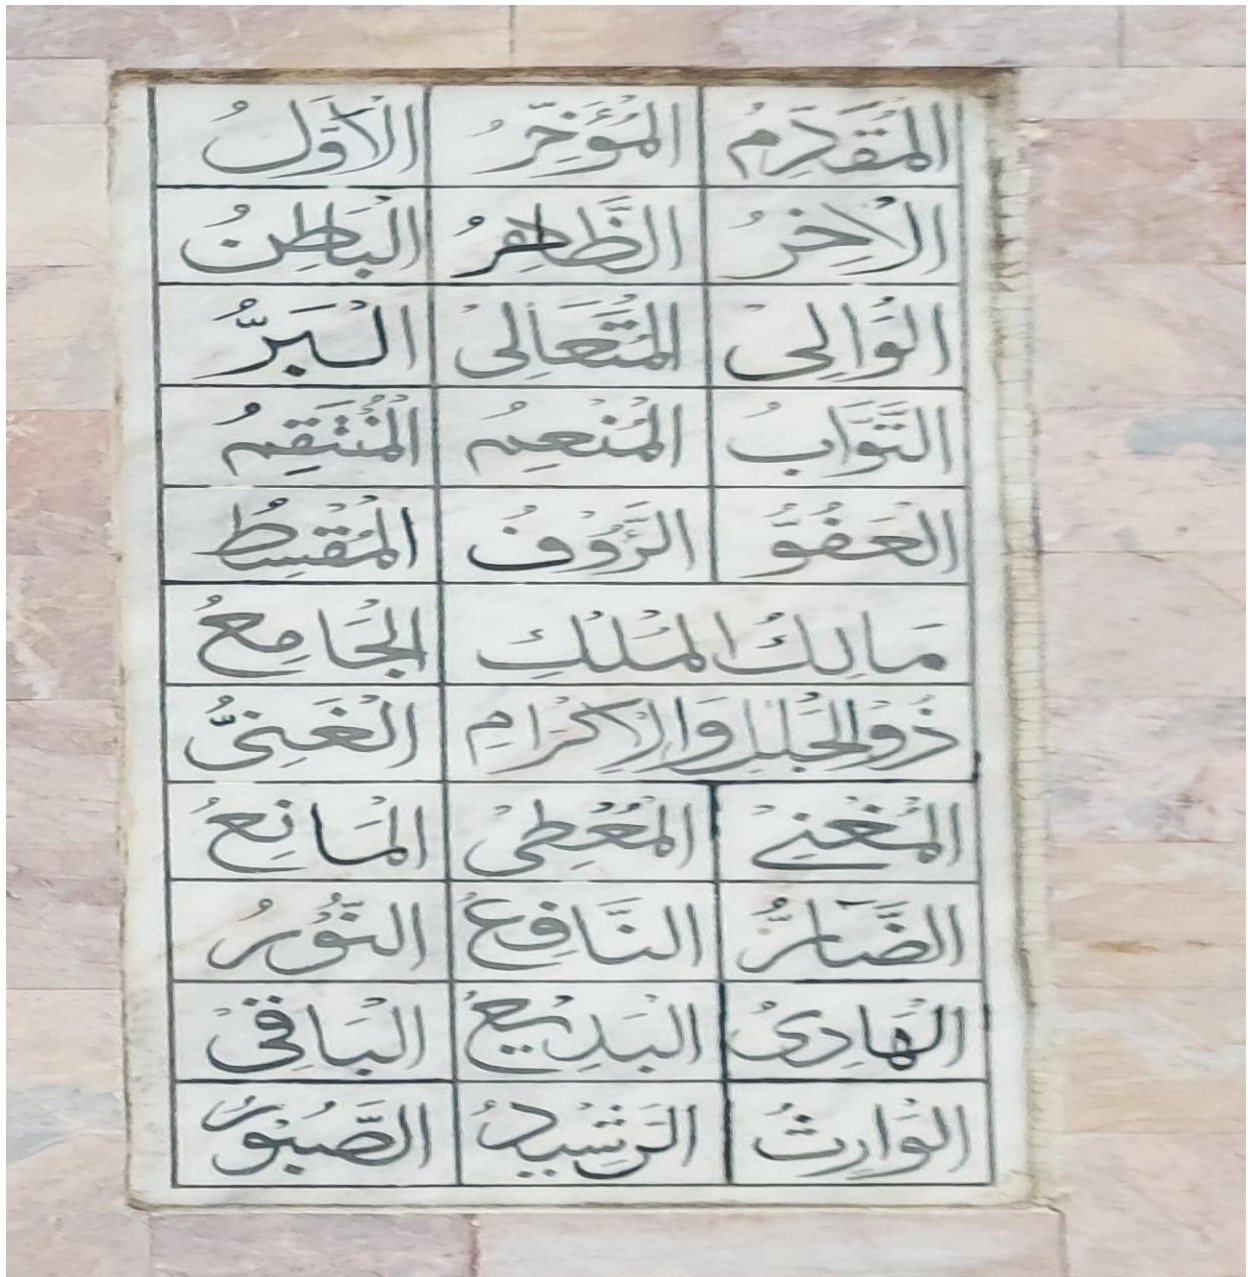 الْمُقَدِّمُ الْمُؤَخِّرُ الْاَوَّلُ
الْاٰخِرُ الظَّاهِرُ الْبَاطِنُ
الْوَالِیْ الْمُتَعَالِیْ الْبَرُّ
التَّوَّابُ الْمُنْعِمُ الْمُنْتَقِمُ
الْعَفُوُّ الرَّؤُوْفُ الْمُقْسِطُ
مَالِكُ الْمُلْكِ الْجَامِعُ
ذُوالْجَلٰلِ وَالْاِكْرَامِ الْغَنِیُّ
الْمُغْنِیْ الْمُعْطِیْ الْمَانِعُ
الضَّارُّ النَّافِعُ النُّوْرُ
الْهَادِیْ الْبَدِیْعُ الْبَاقِیْ
الْوَارِثُ الرَّشِیْدُ الصَّبُوْرُ